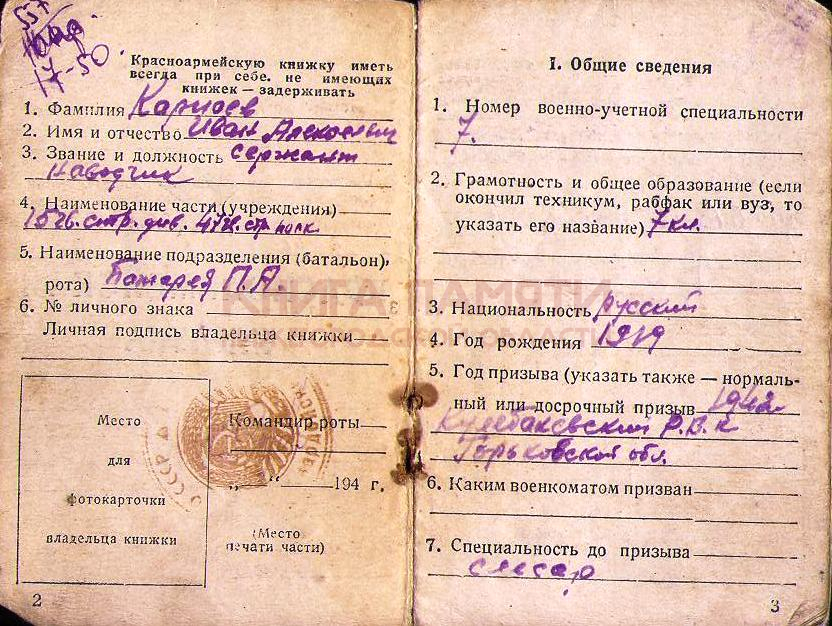 17-50
Красноармейскую книжку иметь
всегда при себе. не имеющих
книжек — задерживать
1. Фамилия
2. Имя и отчество Иван Алексеевич
3. Звание и должность сержант
наводчик
4. Наименование части (учреждения)
стр. див. стр полк
5. Наименование подразделения (батальон),
рота) Батарея П.А.
6. № личного знака
Личная подпись владельца книжки
Место
для
фотокарточки
владельца книжки
Командир роты
„ “ 194 г.
(Место
печати части)
2
I. Общие сведения
1. Номер военно-учетной специальности
7.
2. Грамотность и общее образование (если
окончил техникум, рабфак или вуз, то
указать его название) 7 кл.
3. Национальность русский
4. Год рождения 1919
5. Год призыва (указать также — нормаль-
ный или досрочный призыв 1942
Кулебакский Р.В.К
Горьковской обл.
6. Каким военкоматом призван
7. Специальность до призыва
слесар
3
КНИГА ПАМЯТИ